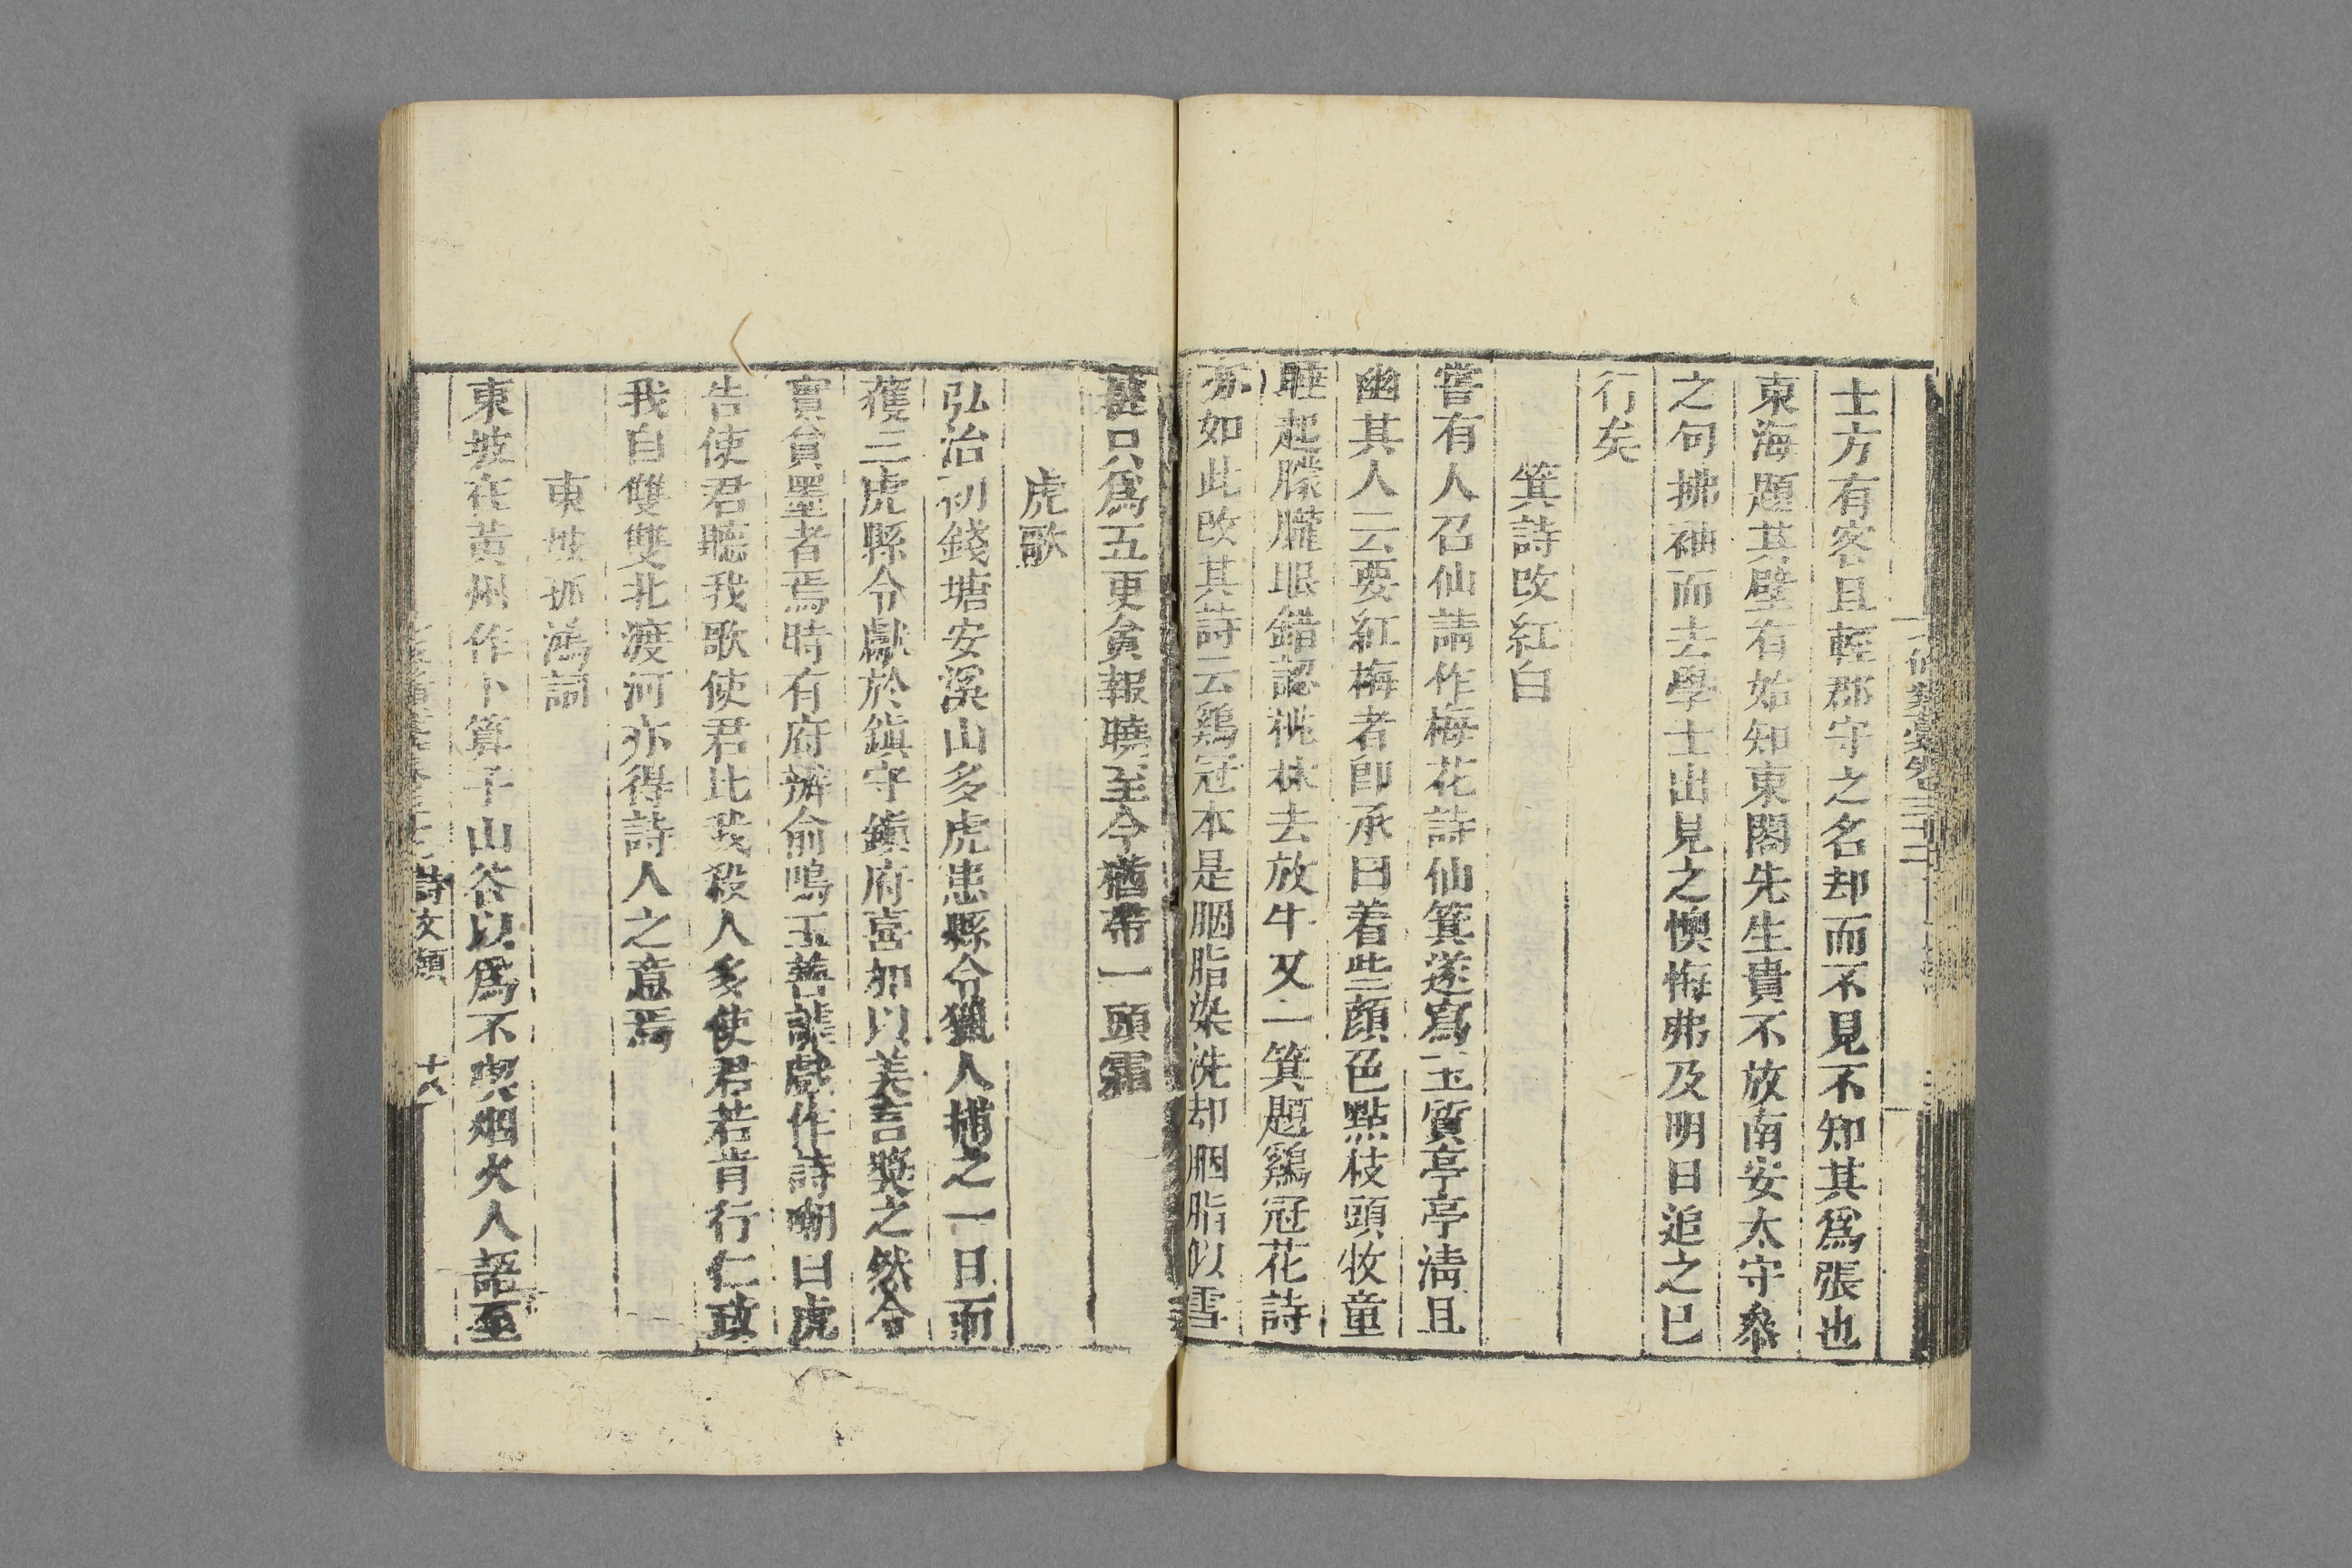 士方有客且輕郡守之名却而不見不知其爲張也
東海題其壁有始知東閣先生貴不放南安太守叅
之句拂袖而去學士出見之懊悔弗及明日追之已
行矣
箕詩改紅白
嘗有人召仙請作梅花詩仙箕遂寫玉質亭亭淸且
幽其人云要紅梅者卽承曰着些顔色點枝頭牧童
睡起朦朧眼錯認桃林去放牛又一箕題鷄冠花詩
亦如此改其詩云鷄冠本是胭脂染洗却胭脂似雪
粧只爲五更貪報曉至今猶帶一頭霜
虎歌
弘治初錢塘安溪山多虎患縣令獵人捕之一日而
獲三虎縣令獻於鎭守鎭府喜加以美言奬之然令
實貪墨者焉時有府癬俞鳴玉善謔戲作詩嘲曰虎
告使君聽我歌使君比我殺人多使君若肯行仁政
我自雙雙北渡河亦得詩人之意焉
東坡孤鴻詞
東坡在黃州作卜算子山谷以爲不喫烟火人語至
詩文類
十八